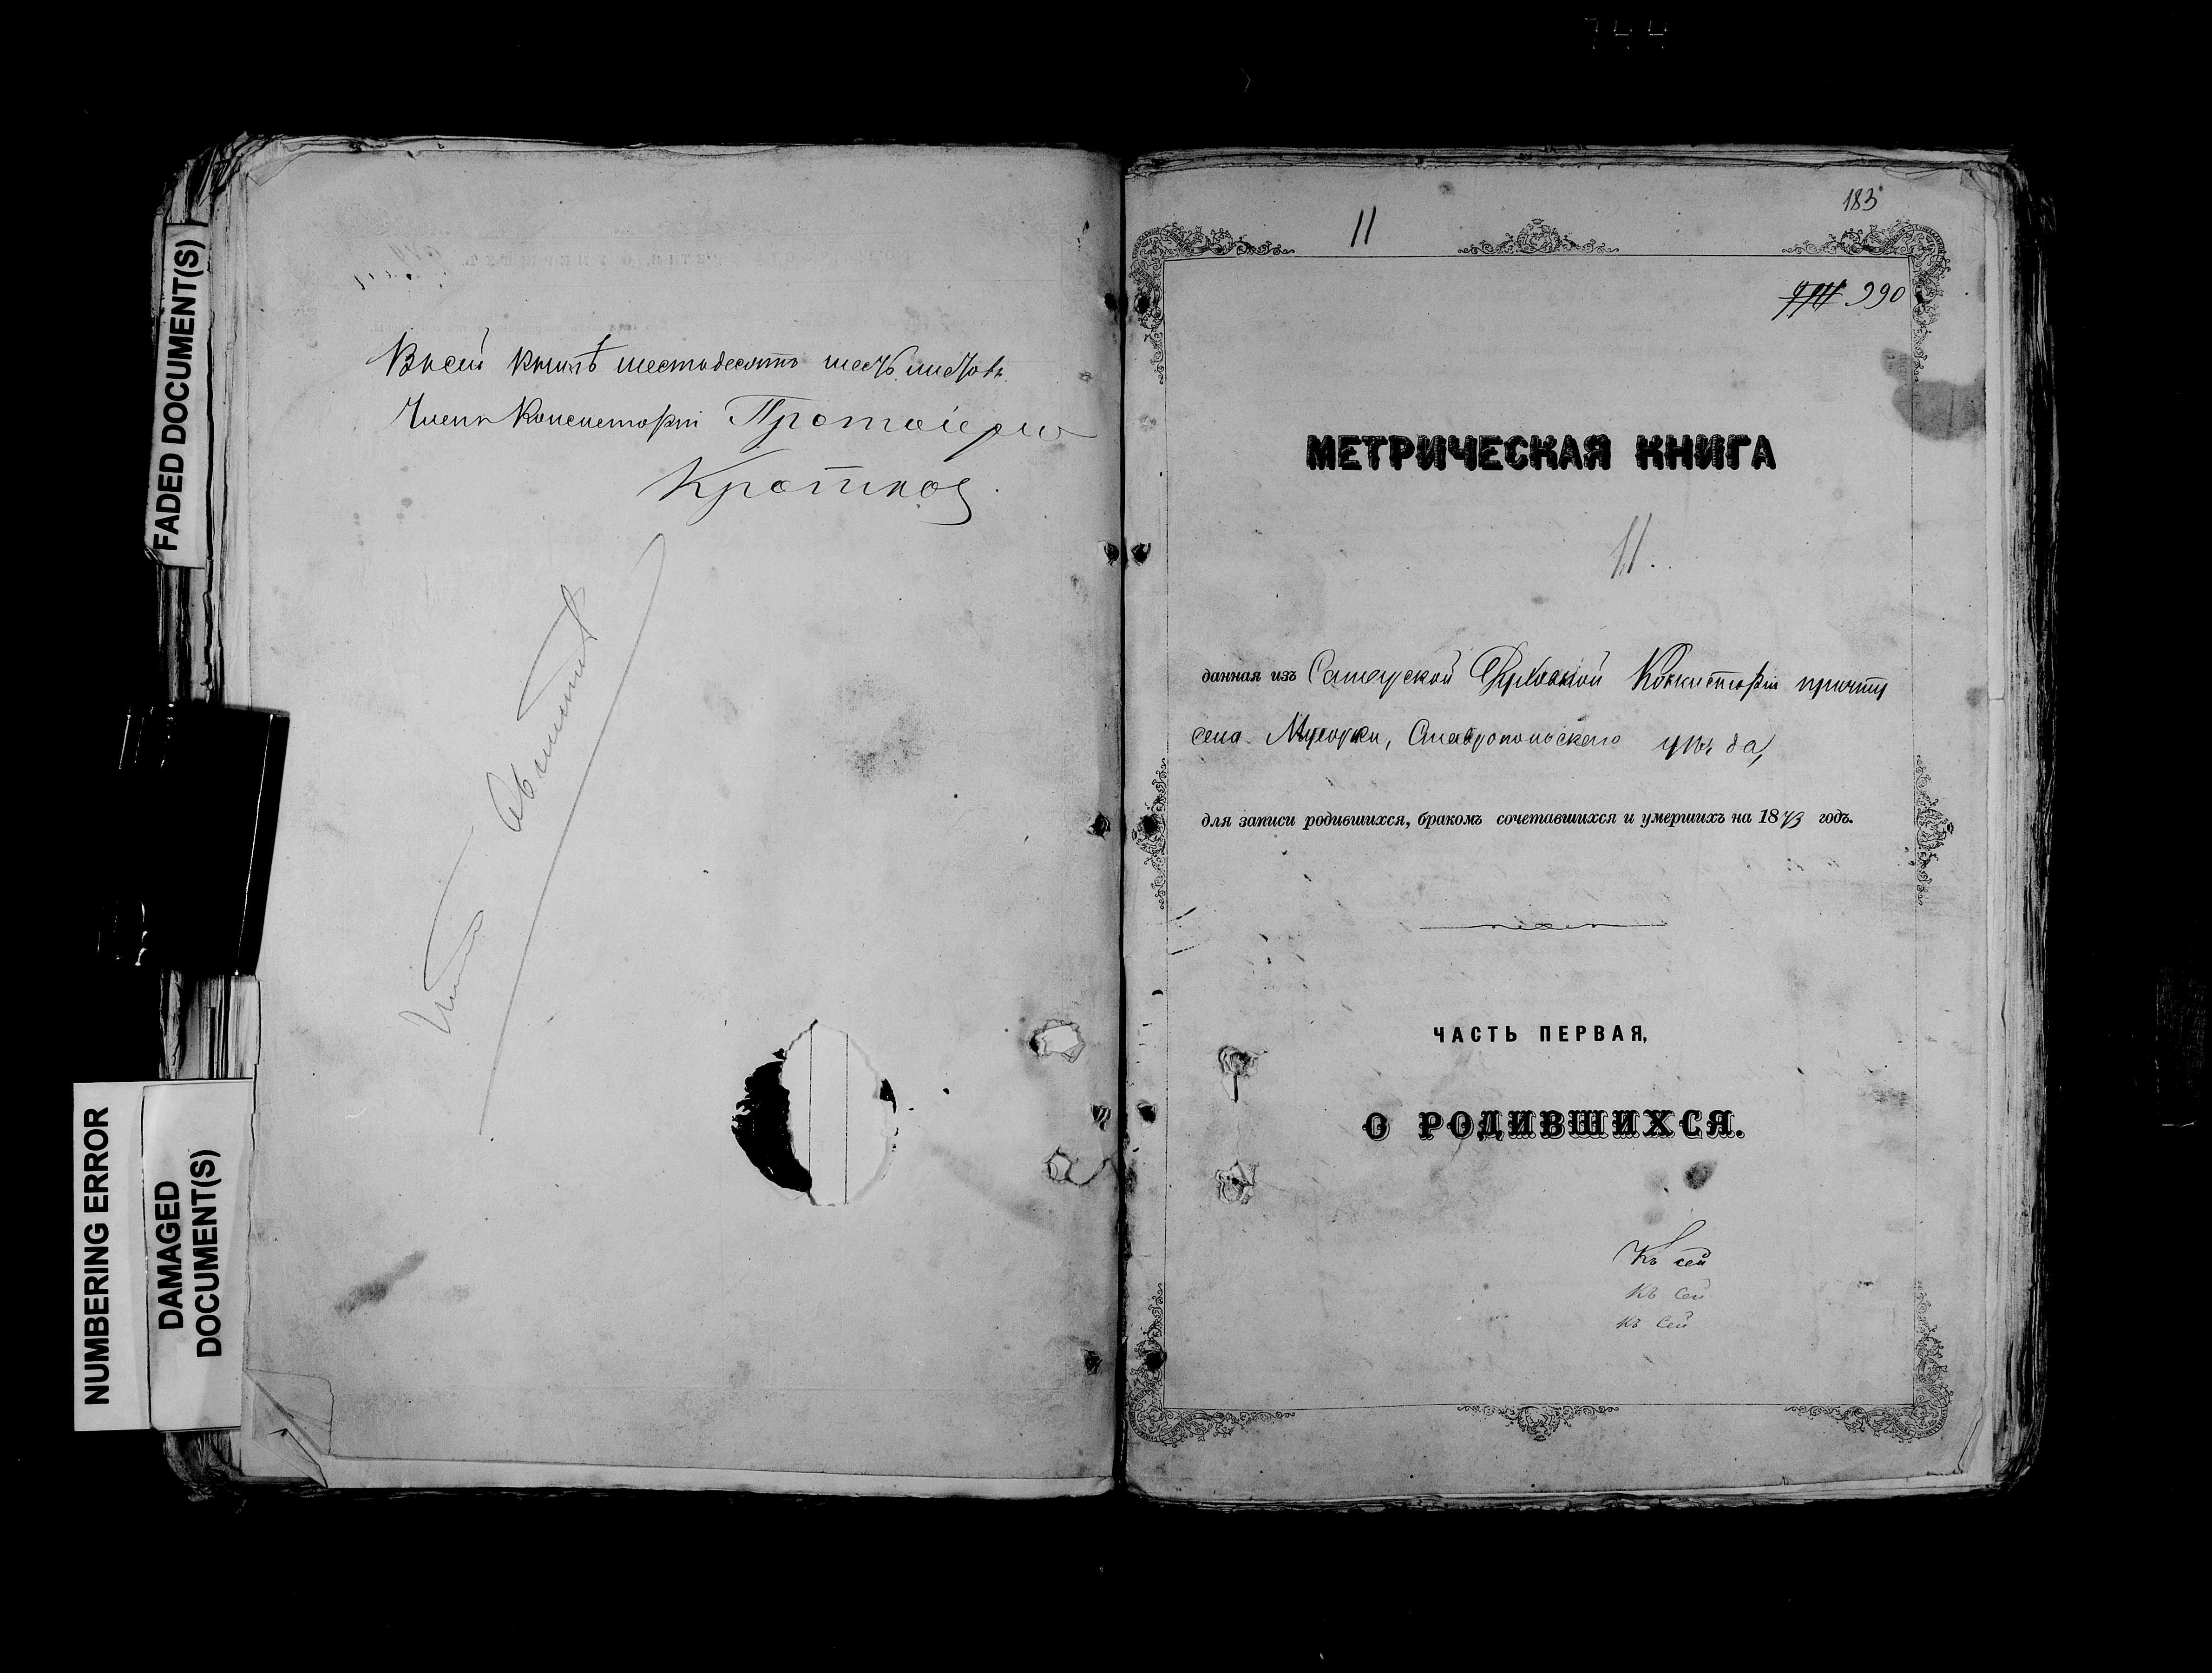 744
FADED DOCUMENT(S)
NUMBERING ERROR
DAMAGED
DOCUMENT(S)
Въ сей книгѣ шестьдесятъ шесть листовъ.
Членъ Консисторіи Протоіерей
Кротков
183
11
990
МЕТРИЧЕСКАЯ КНИГА
11.
данная изъ Самарской Духовной Консисторіи причту
села Мусорки, Ставропольскаго уѣзда,
для записи родившихся, бракомъ сочетавшихся и умершихъ на 1873 годъ.
ЧАСТЬ ПЕРВАЯ,
О РОДИВШИХСЯ.
Къ сей
Къ сей
Къ сей